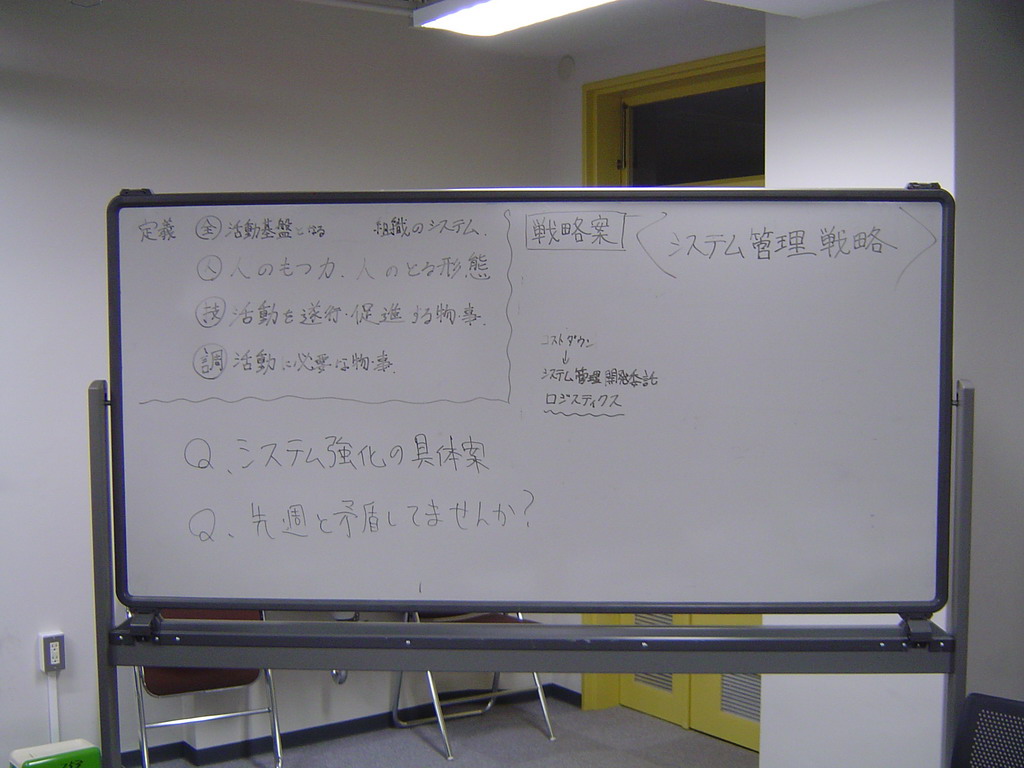 定義 金 活動基盤となる 組織のシステム.
人 人のもつ力. 人のとる形態
技 活動を遂行・促進する物・事.
調 活動に必要な物・事.
Q、システム強化の具体案
Q、先週と矛盾してませんか?
戦略案 〈システム管理戦略〉
コストダウン
↓
システム管理開発委託
ロジスティクス